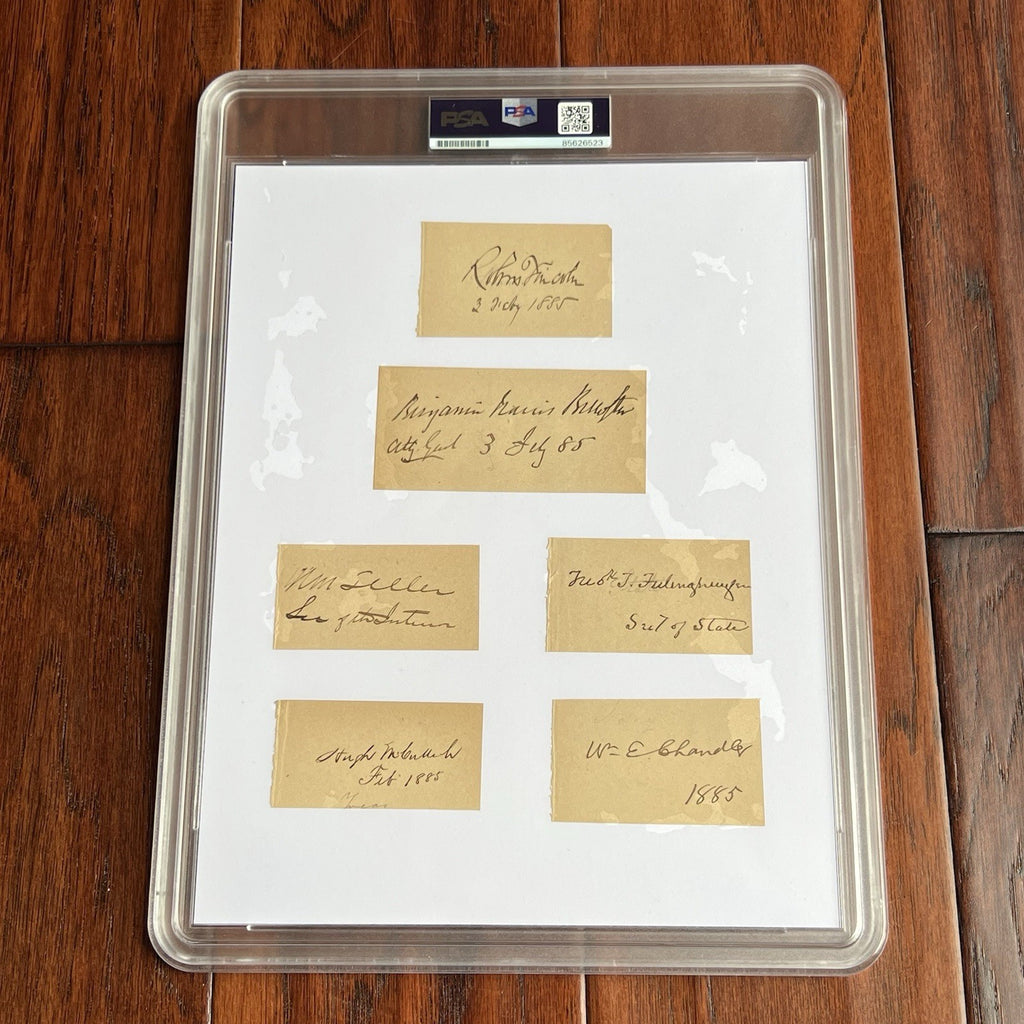 PSA PSA
85626523
Robert T Lincoln
3 Feby 1885
Benjamin Harris Brewster
Atty Genl 3 Feby 85
HM Teller
Sec of the Interior
Fredk T. Frelinghuysen
Secy of State
Hugh McCulloch
Feb 1885
Treas
Wm E. Chandler
1885